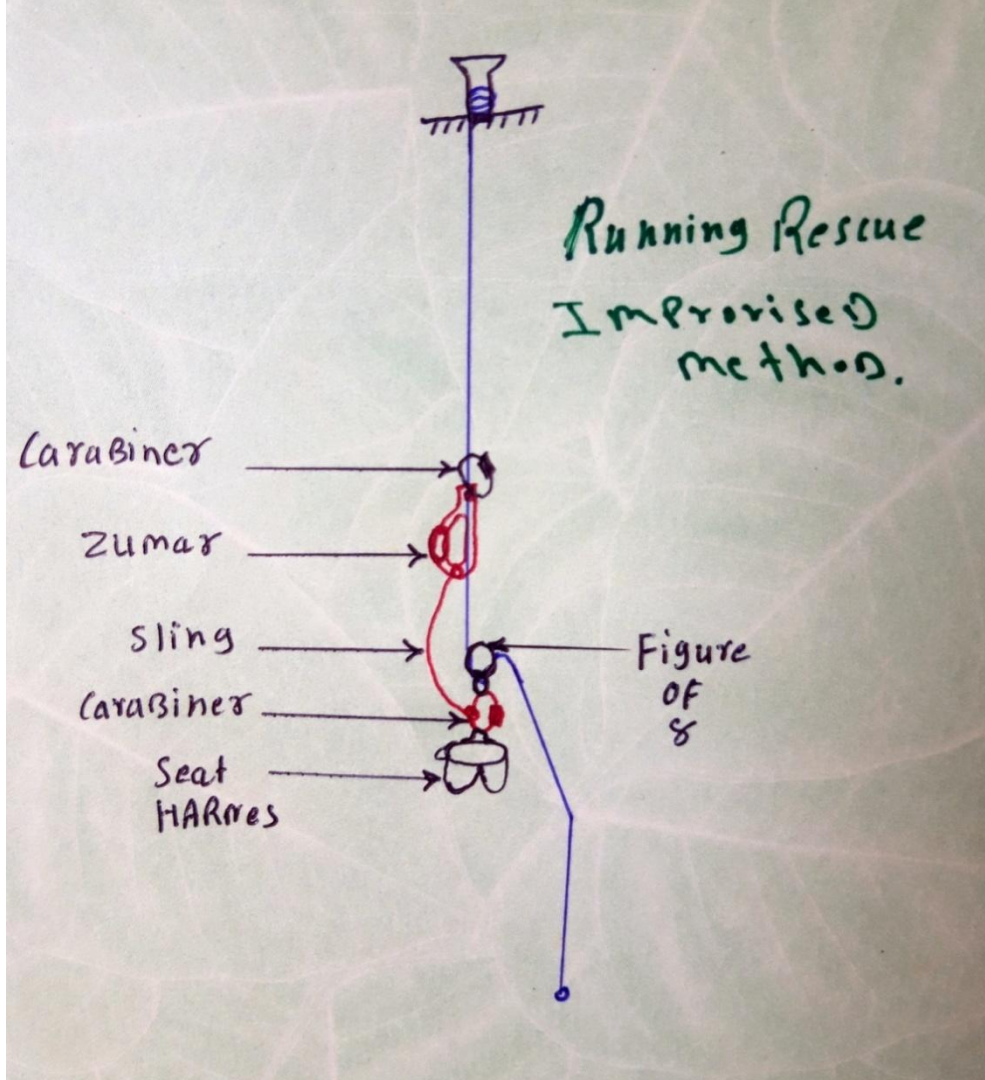 Running Rescue
Improvised
method.
CaraBiner
Zumar
Sling
CaraBiner
Seat
HARnes
Figure
OF
8